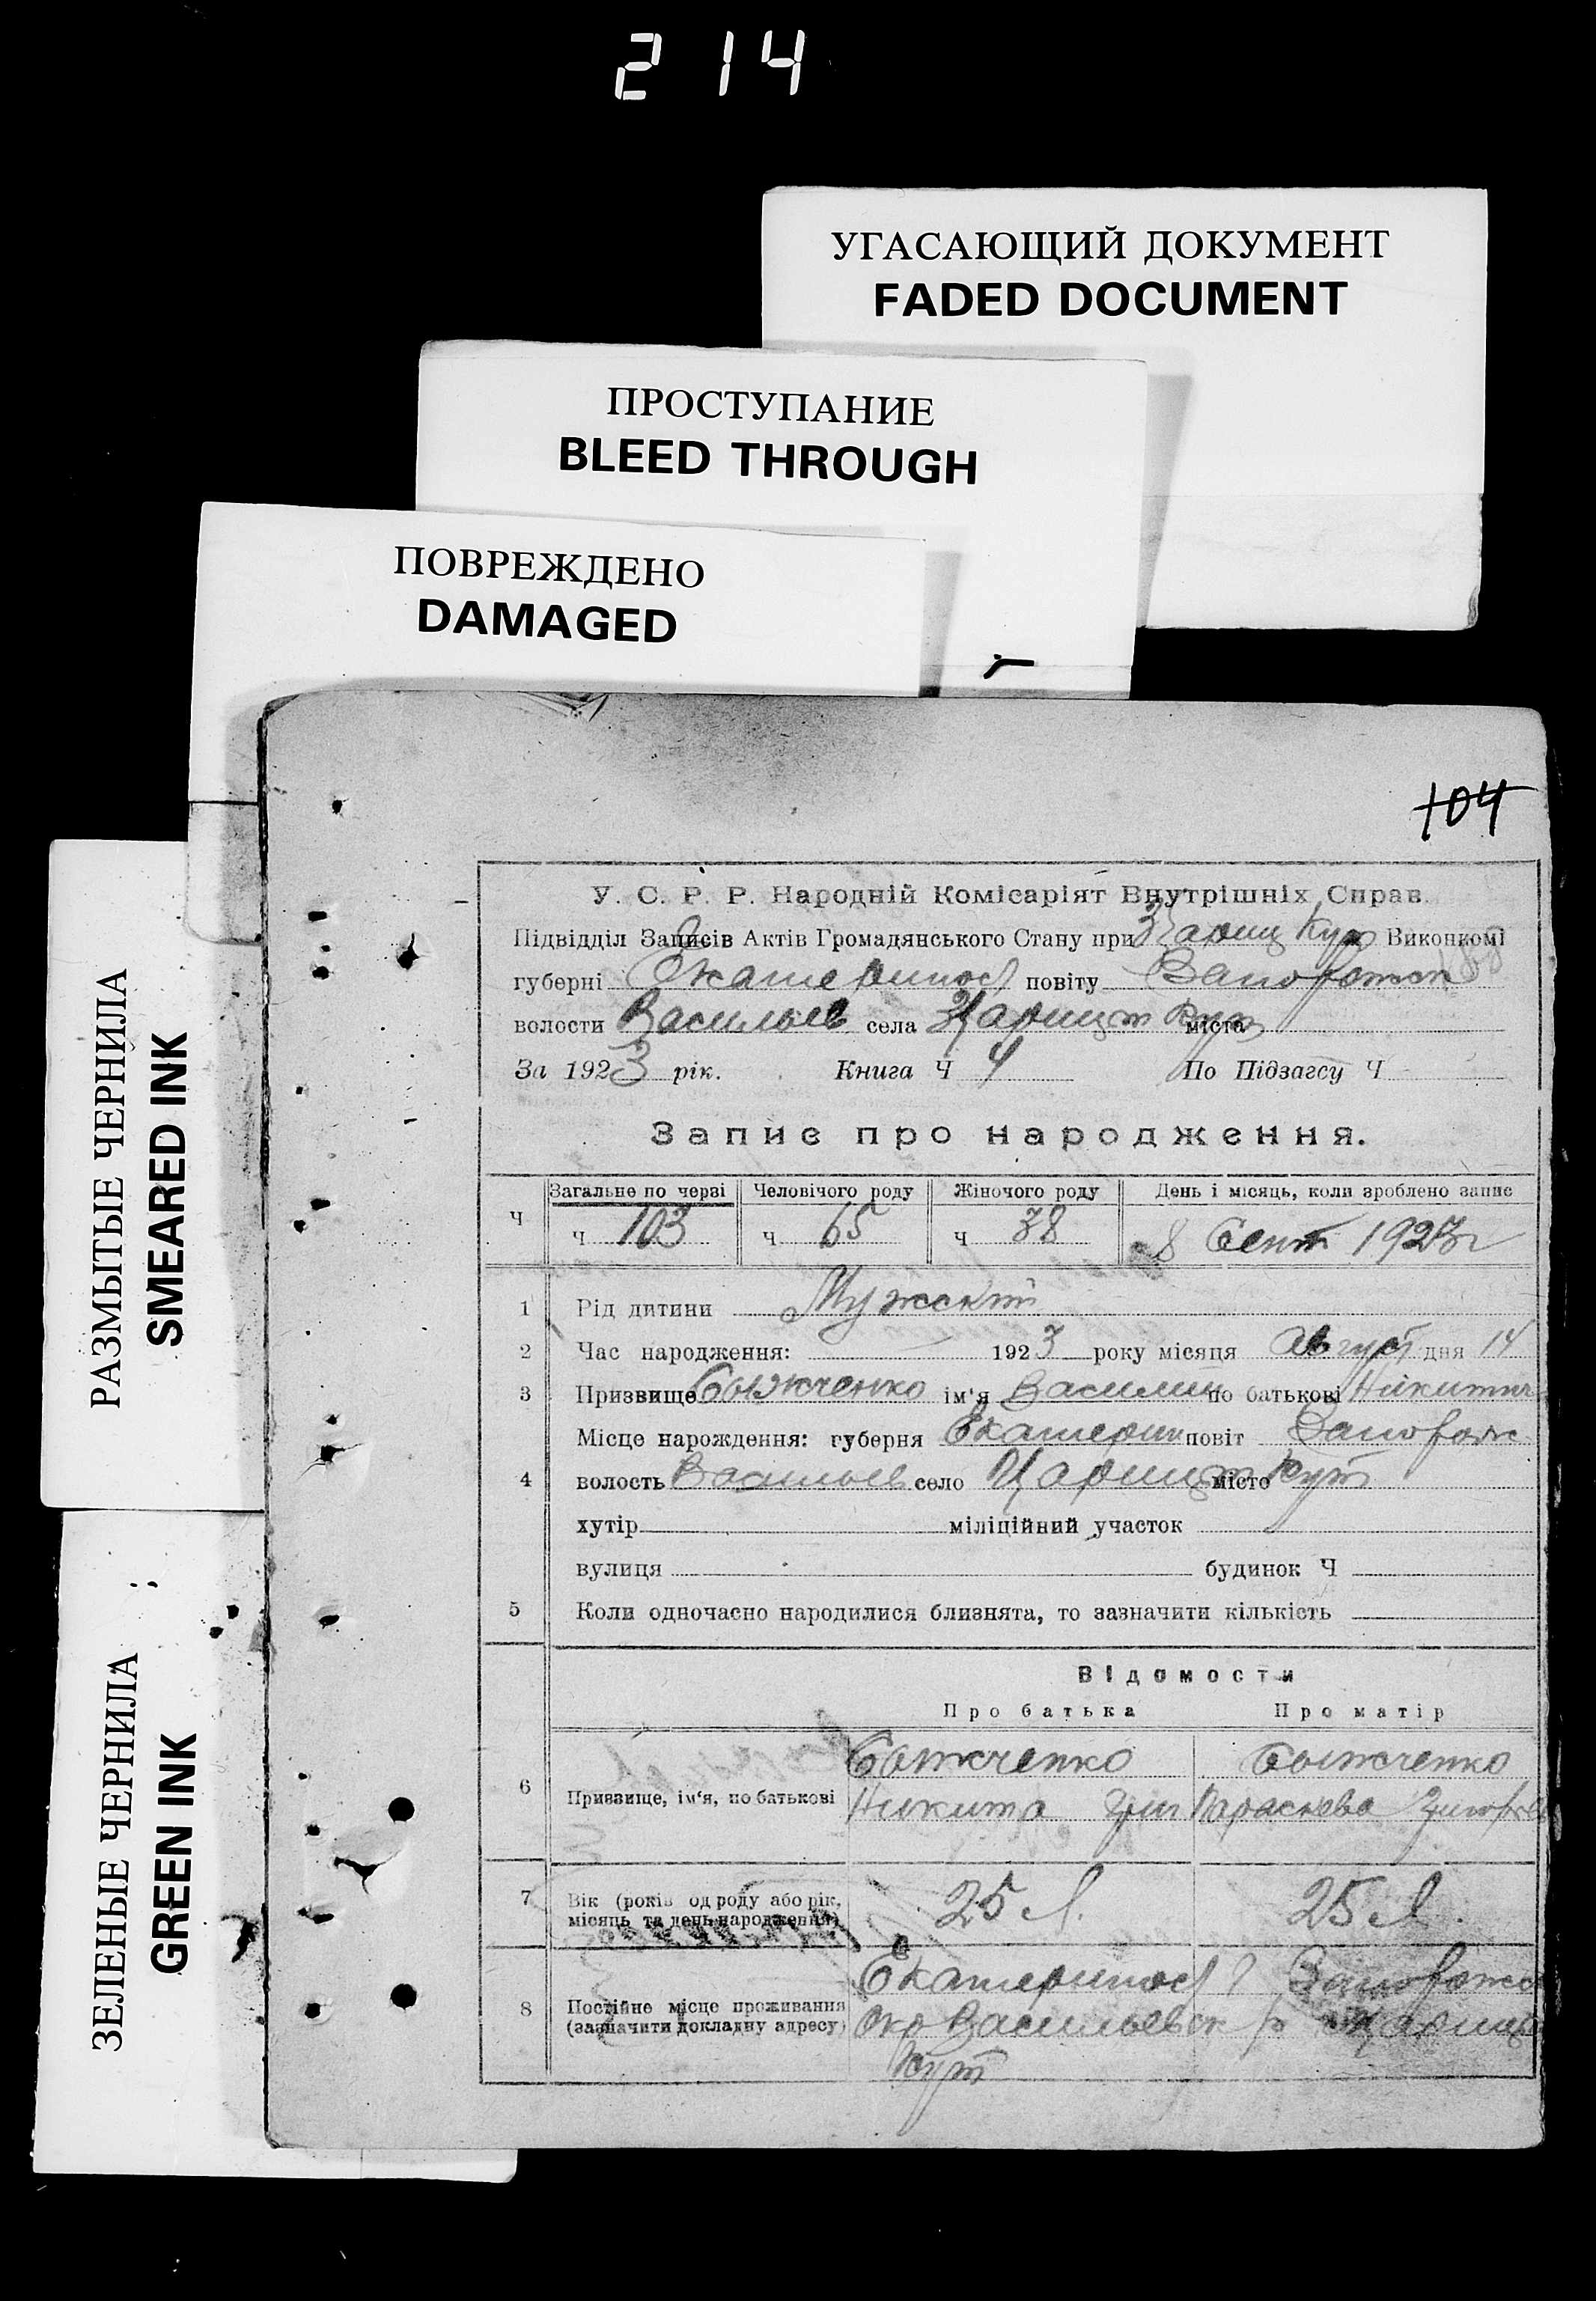 214
УГАСАЮЩИЙ ДОКУМЕНТ
FADED DOCUMENT
ПРОСТУПАНИЕ
BLEED THROUGH
ПОВРЕЖДЕНО
DAMAGED
РАЗМЫТЫЕ ЧЕРНИЛА
SMEARED INK
ЗЕЛЕНЫЕ ЧЕРНИЛА
GREEN INK
104
У. С. Р. Р. Народній Комісаріят Внутрішніх Справ.
Підвідділ Записів Актів Громадянського Стану при Цариц Кут Виконкомі
губерні Екатеринос повіту Запорожск
волости Васильев села Царицын Кут міста
За 1923 рік. Книга Ч 4 По Підзагсу Ч
Запис про народження.
Ч Загальне по черзі Человічого роду Жіночого роду День і місяць, коли зроблено запис
ч 103 ч 65 ч 38 8 Сент 1923 г
1 Рід дитини Мужской
2 Час народження: 1923 року місяця Август дня 14
3 Призвище ім'я Василий по батькові Никитич
Місце нарождення: губерня Екатерин повіт Запорож
4 волость Васильев село Цариц місто Кут
хутір міліційний участок
вулиця будинок Ч
5 Коли одночасно народилися близнята, то зазначити кількість
Відомости
Про батька Про матір
6 Призвище, ім'я, по батькові
Никита Гри Параскева Григорьев
7 Вік (років од роду або рік, місяць та день народження) 25 л. 25 л.
8 Постійне місце проживання (зазначити докладну адресу) Екатеринос Г Запорожс
Окр Васильевск р Цариц
Кут